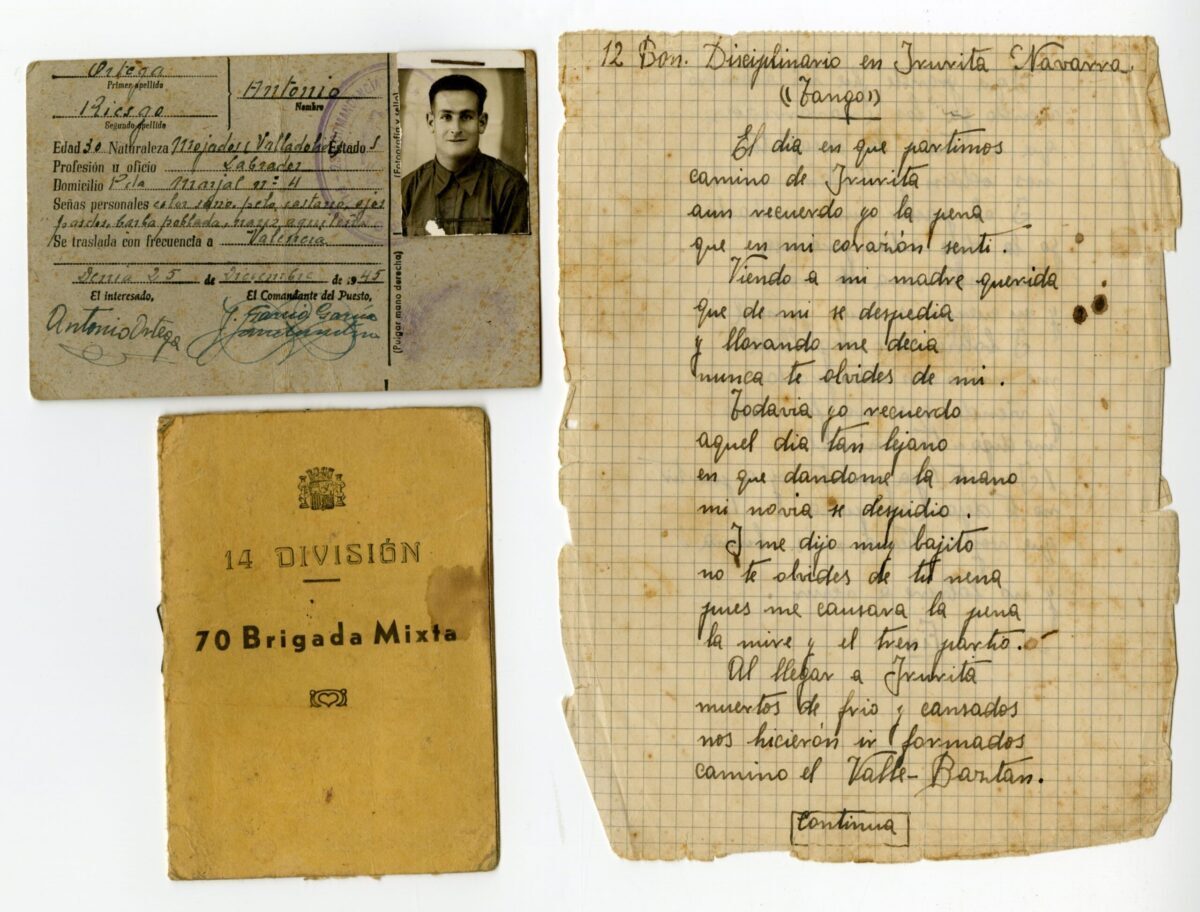 Ortega
Primer apellido
Antonio
Nombre
Riesgo
Segundo apellido
Edad 30 Naturaleza Mojados (Valladolid) Estado S
Profesión u oficio Labrador
Domicilio Pda Marjal nº 4
Señas personales color sano, pelo castaño, ojos
pardos, barba poblada, nariz aguileña
Se traslada con frecuencia a Valencia
Denia 25 de Diciembre de 1945
El interesado, El Comandante del Puesto,
Antonio Ortega
J. García García
(Fotografía y sello)
(Pulgar mano derecha)
14 DIVISIÓN
70 Brigada Mixta
12 Bon. Disciplinario en Irurita Navarra.
((Tango))
El dia en que partimos
camino de Irurita
aun recuerdo yo la pena
que en mi corazón senti.
Viendo a mi madre querida
que de mi se despedia
y llorando me decia
nunca te olvides de mi.
Todavia yo recuerdo
aquel dia tan lejano
en que dandome la mano
mi novia se despidio.
I me dijo muy bajito
no te olvides de tu nena
pues me causara la pena
la mire y el tren partió.
Al llegar a Irurita
muertos de frio y cansados
nos hicierón ir formados
camino el Valle-Baztan.
Continua